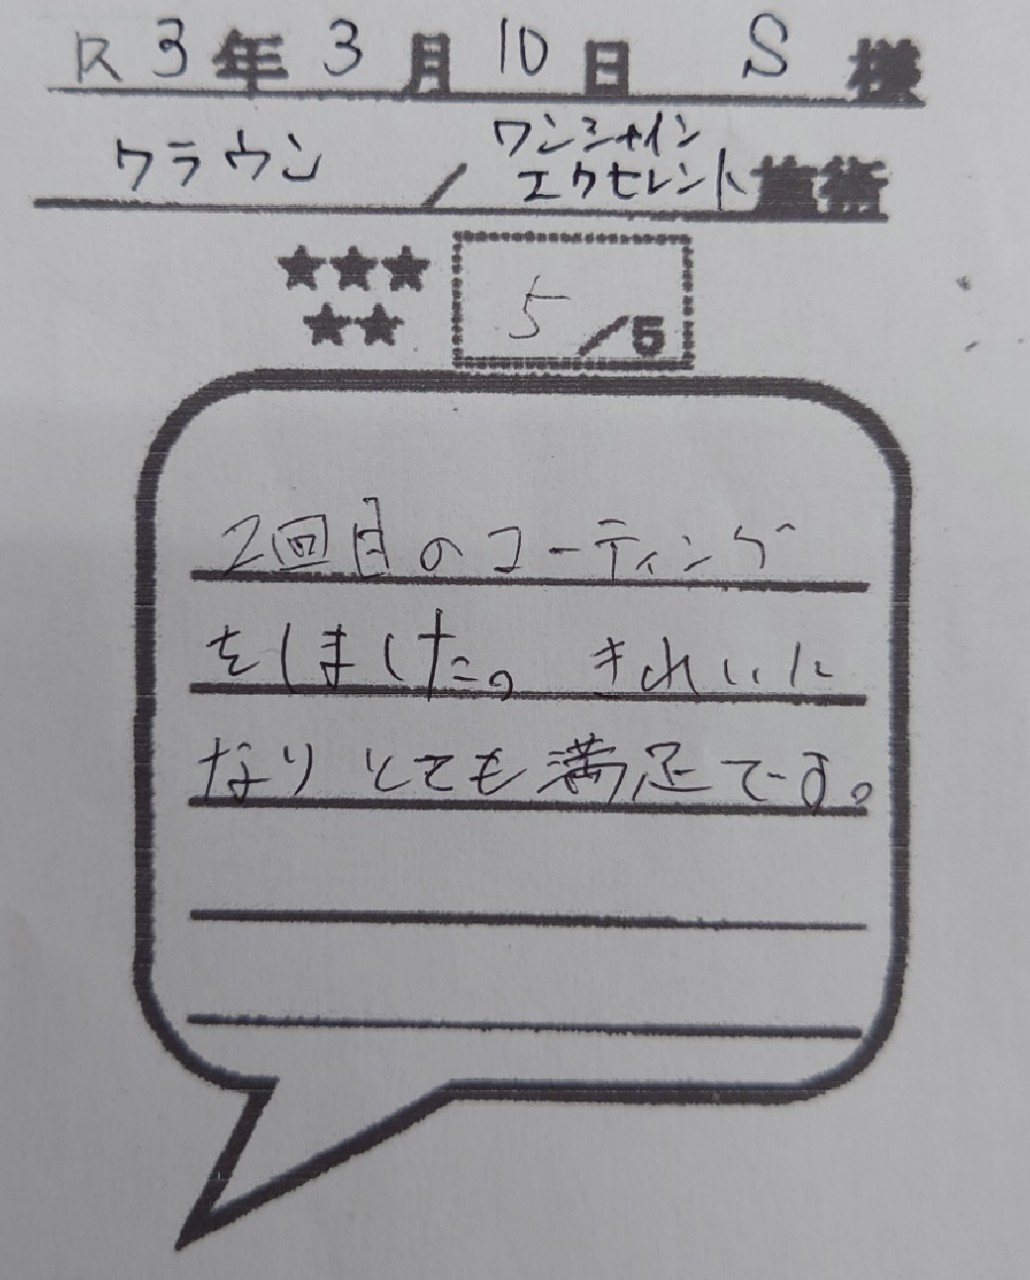 R3年3月10日 S様
クラウン / ワンシャイン
エクセレント施術
★★★
★★
5/5
2回目のコーティング
をしました。きれいに
なりとても満足です。